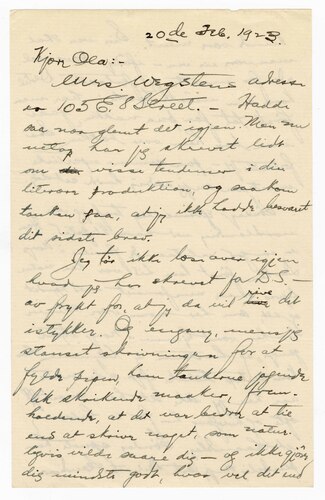 20de Feb. 1923.
Kjær Ola:-
Mrs. Wegstens adresse
er 105 E. 8 Street. - Hadde
saa nær glemt det igjen. Men nu
netop har jeg skrevet lidt
om visse tendenser i din
literære produktion, og saa kom
tanken paa, at jeg ikke hadde besvaret
dit sidste brev.
Jeg tør ikke læse over igjen
hvad jeg har skrevet paa D.S. -
av frykt for, at jeg da vil rive det
istykker. Og engang, mens jeg
stanset skrivningen for at
fylde pipen, kom tankene jagende
lik skrikende maaker, frem-
holdende, at det var bedre at tie
end at skrive noget, som natur-
ligvis vilde saare dig - og ikke gjøre
dig mindste godt, hvor vel det end